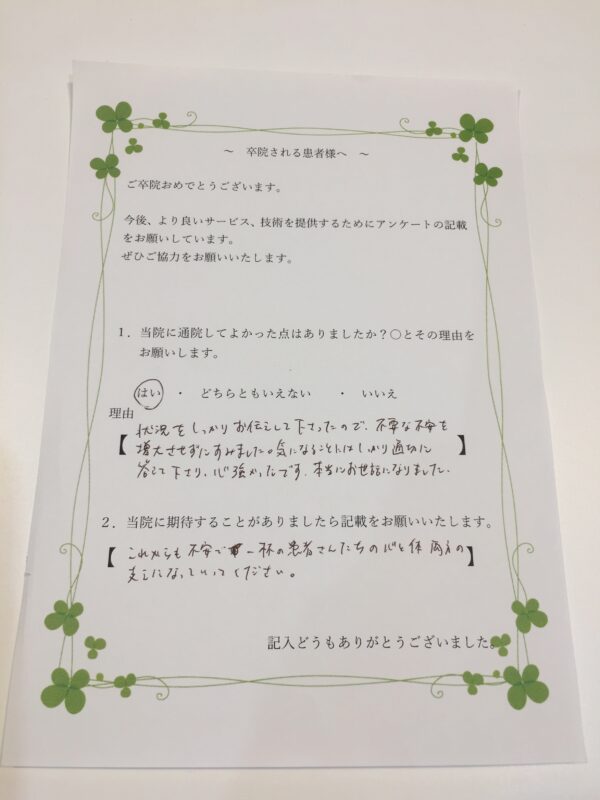 ～ 卒院される患者様へ ～
ご卒院おめでとうございます。
今後、より良いサービス、技術を提供するためにアンケートの記載
をお願いしています。
ぜひご協力をお願いいたします。
１．当院に通院してよかった点はありましたか？〇とその理由を
お願いします。
はい ・ どちらともいえない ・ いいえ
理由
【状況をしっかりお伝えして下さったので、不要な不安を
増大させずにすみました。気になることにはしっかり適切に
答えて下さり、心強かったです。本当にお世話になりました。】
２．当院に期待することがありましたら記載をお願いいたします。
【これからも不安で一杯の患者さんたちの心と体両方の
支えになっていってください。】
記入どうもありがとうございました。